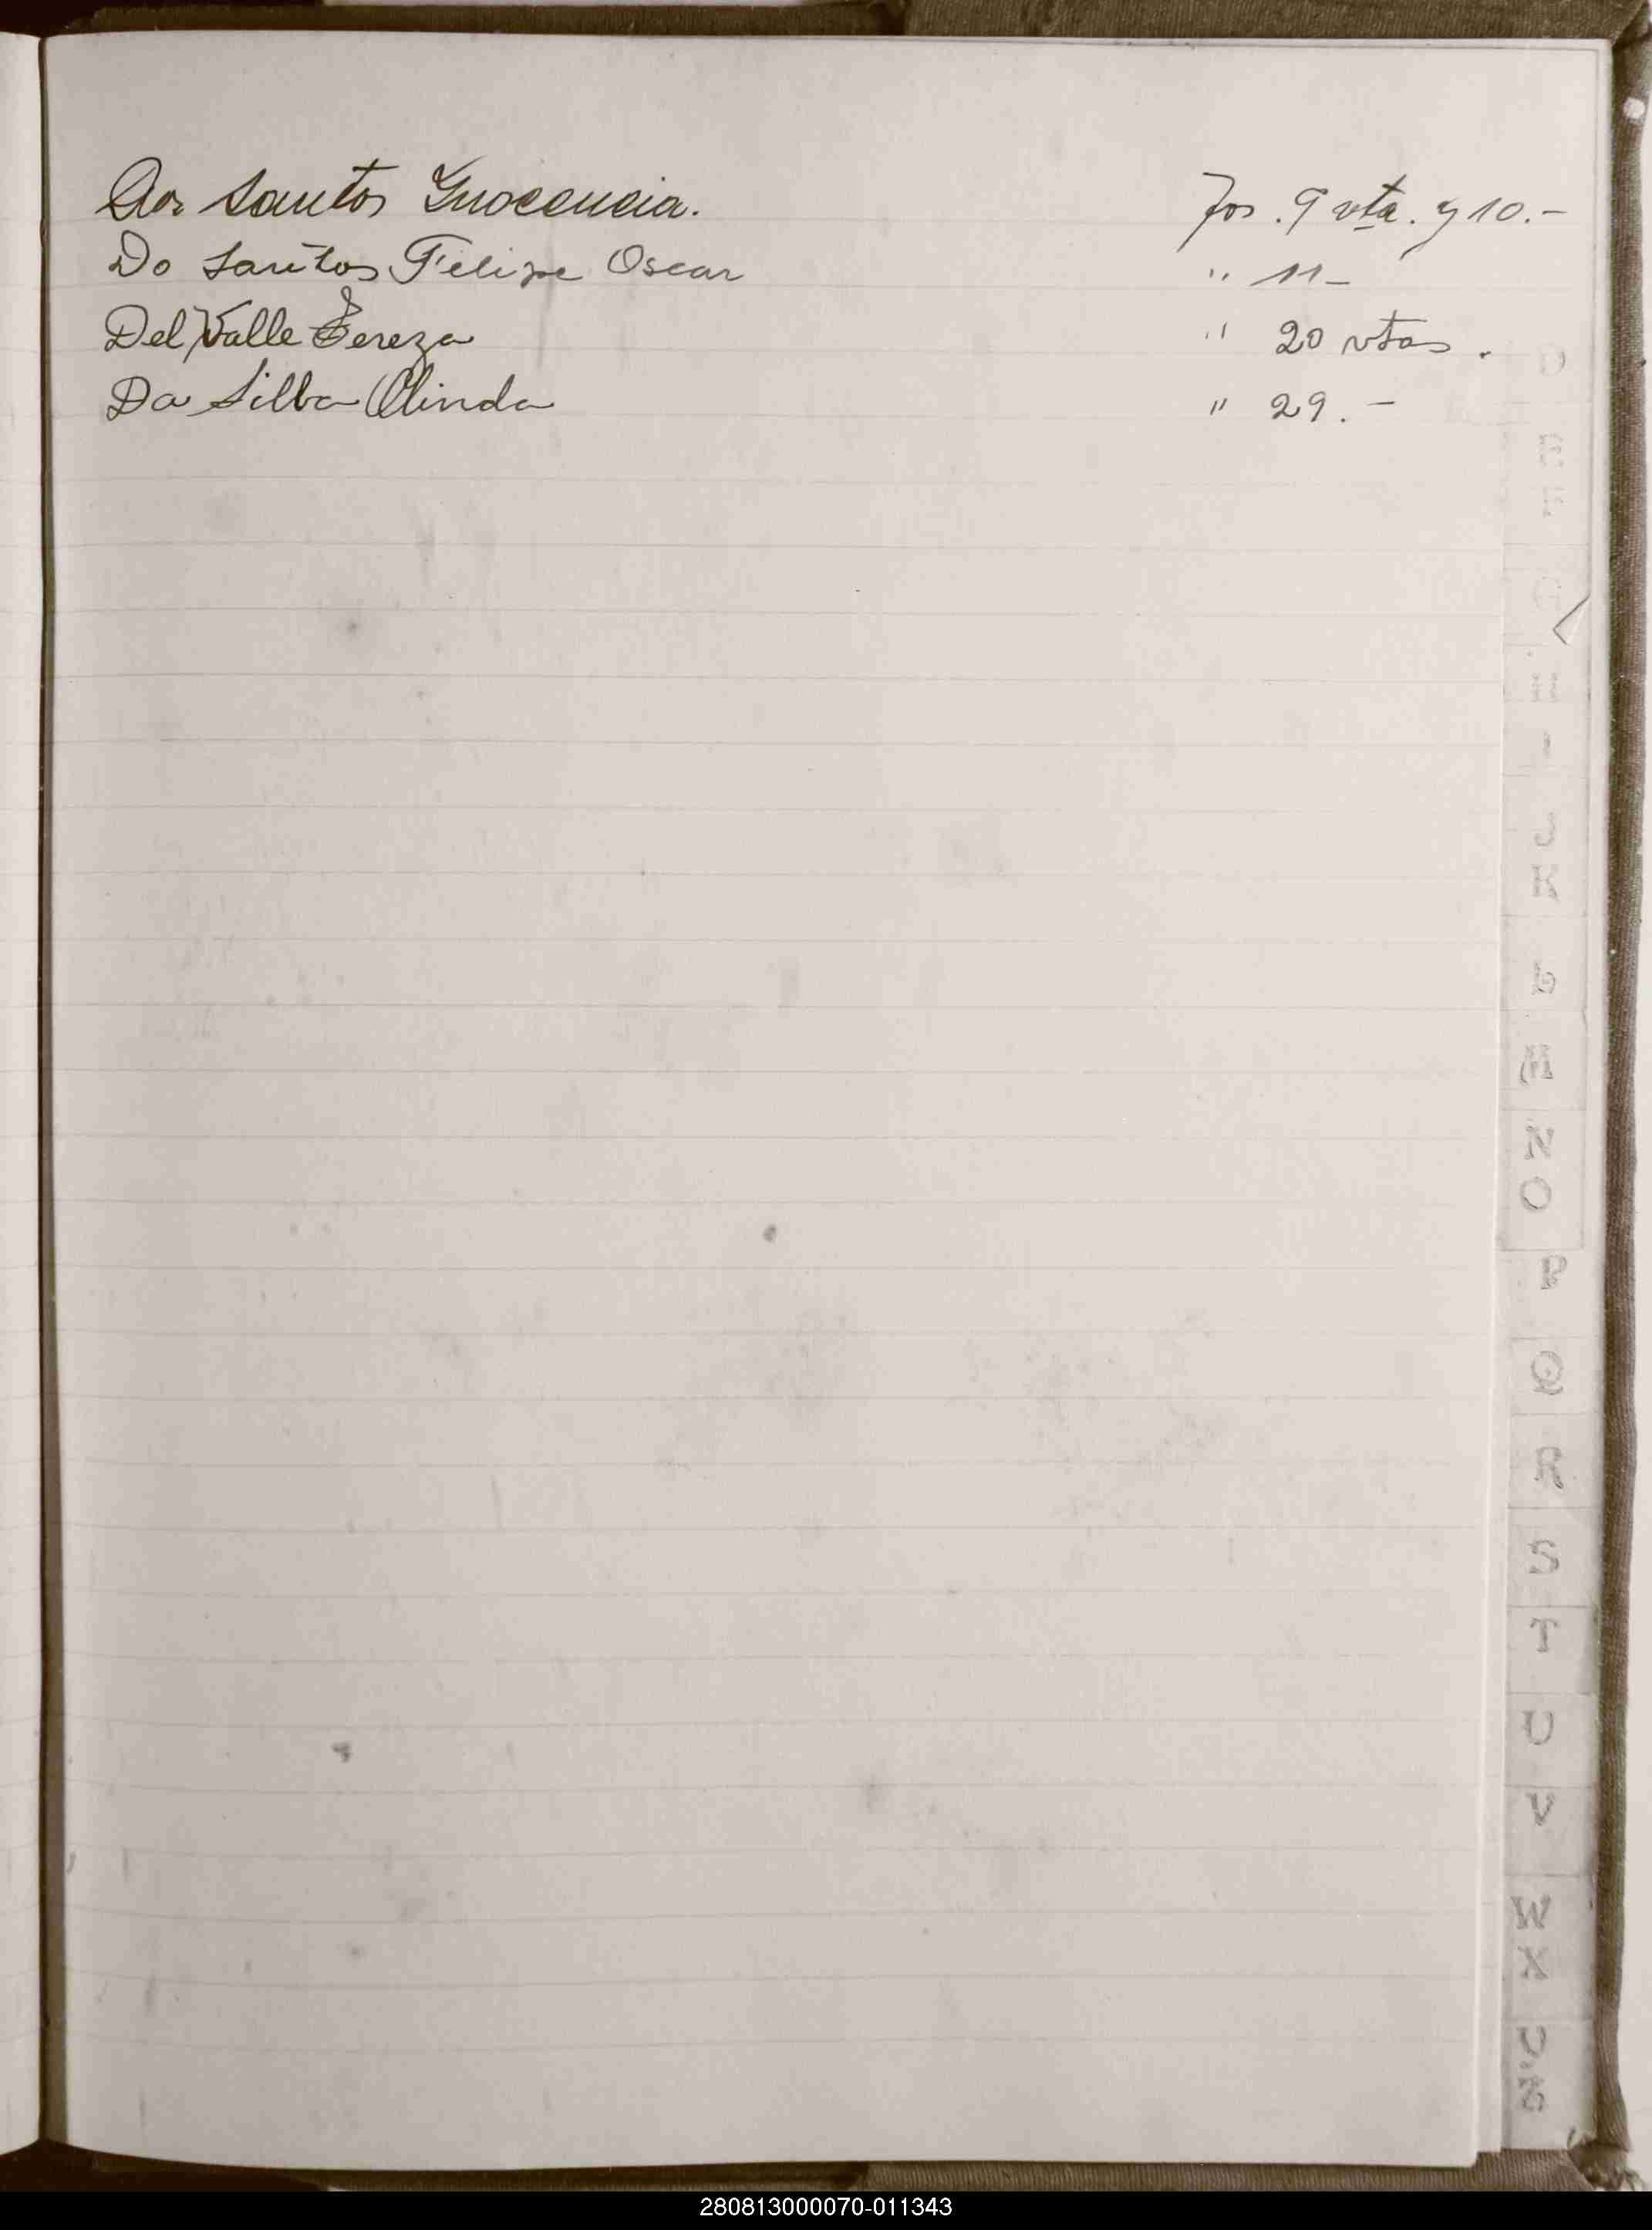 Dos Santos Inocencia. Fos. 9 vta. y 10.-
Do Santos Felipe Oscar " 11-
Del Valle Tereza " 20 vtas.
Da Silba Olinda " 29.-
N
O
P
Q
R
S
T
U
V
W
X
280813000070-011343